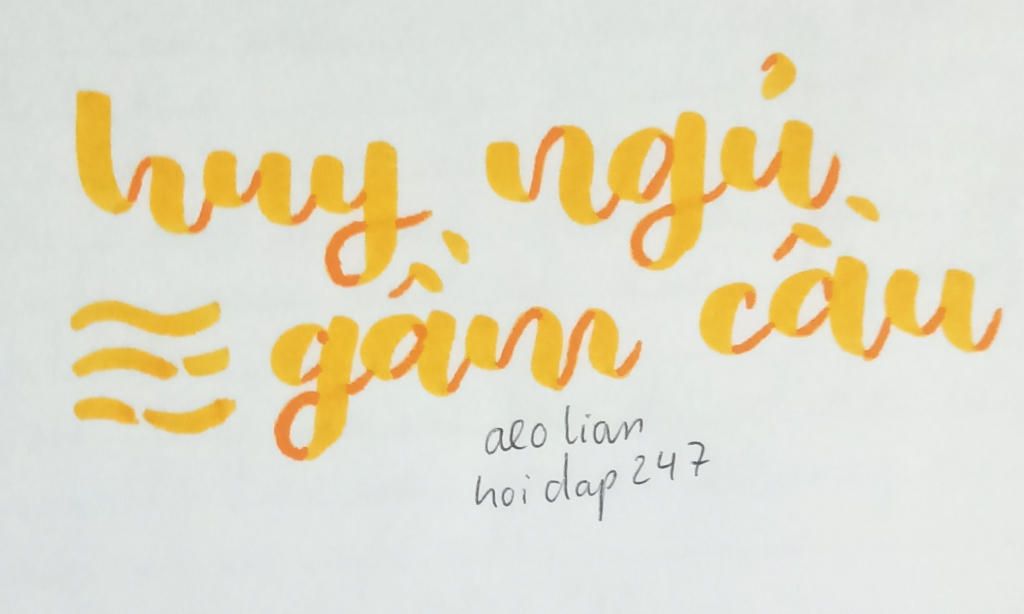 huy ngủ
gầm cầu
aeo lian
hoidap247